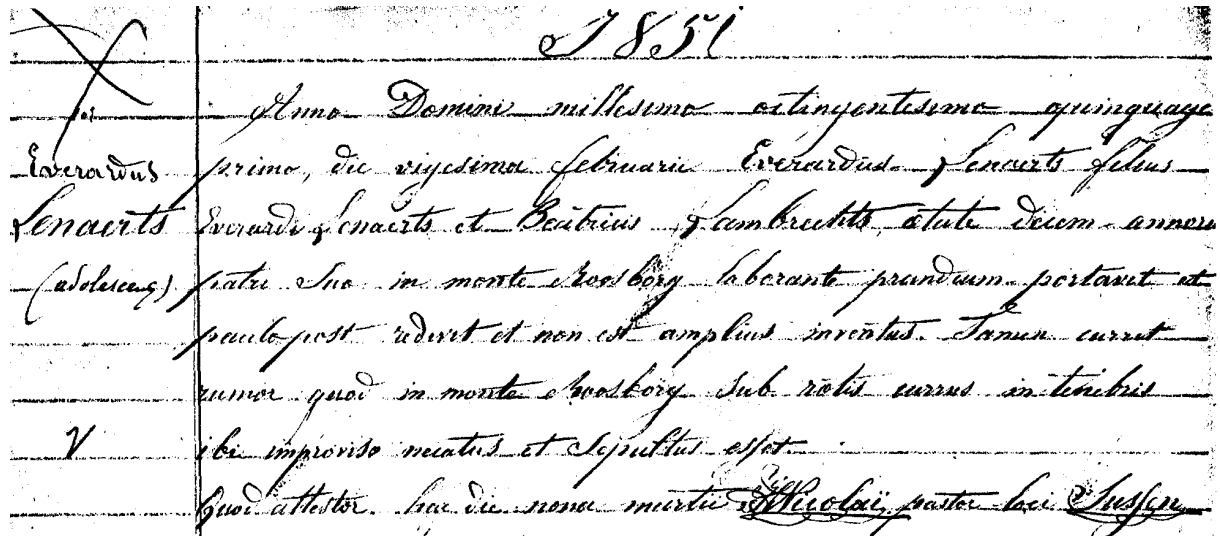 1851
Anno Domini millesimo octingentesimo quinquage
Everardus
primo, die vigesima februarii Everardus Lenaerts filius
Lenaerts
Everardi Lenaerts et Beatricis Lambrechts, etate decem annoru
(adolescens)
patri suo in monte Roosbórg laborante prandium portavit et
paulo post redivit et non est amplius inventus. Tamen currit
rumor quod in monte Roosbórg sub rotis currus in tenebris
V
ibi improviso necatus et sepultus esset.
Quod attestor hac die nona martii Nicolaï pastor loci Sussen